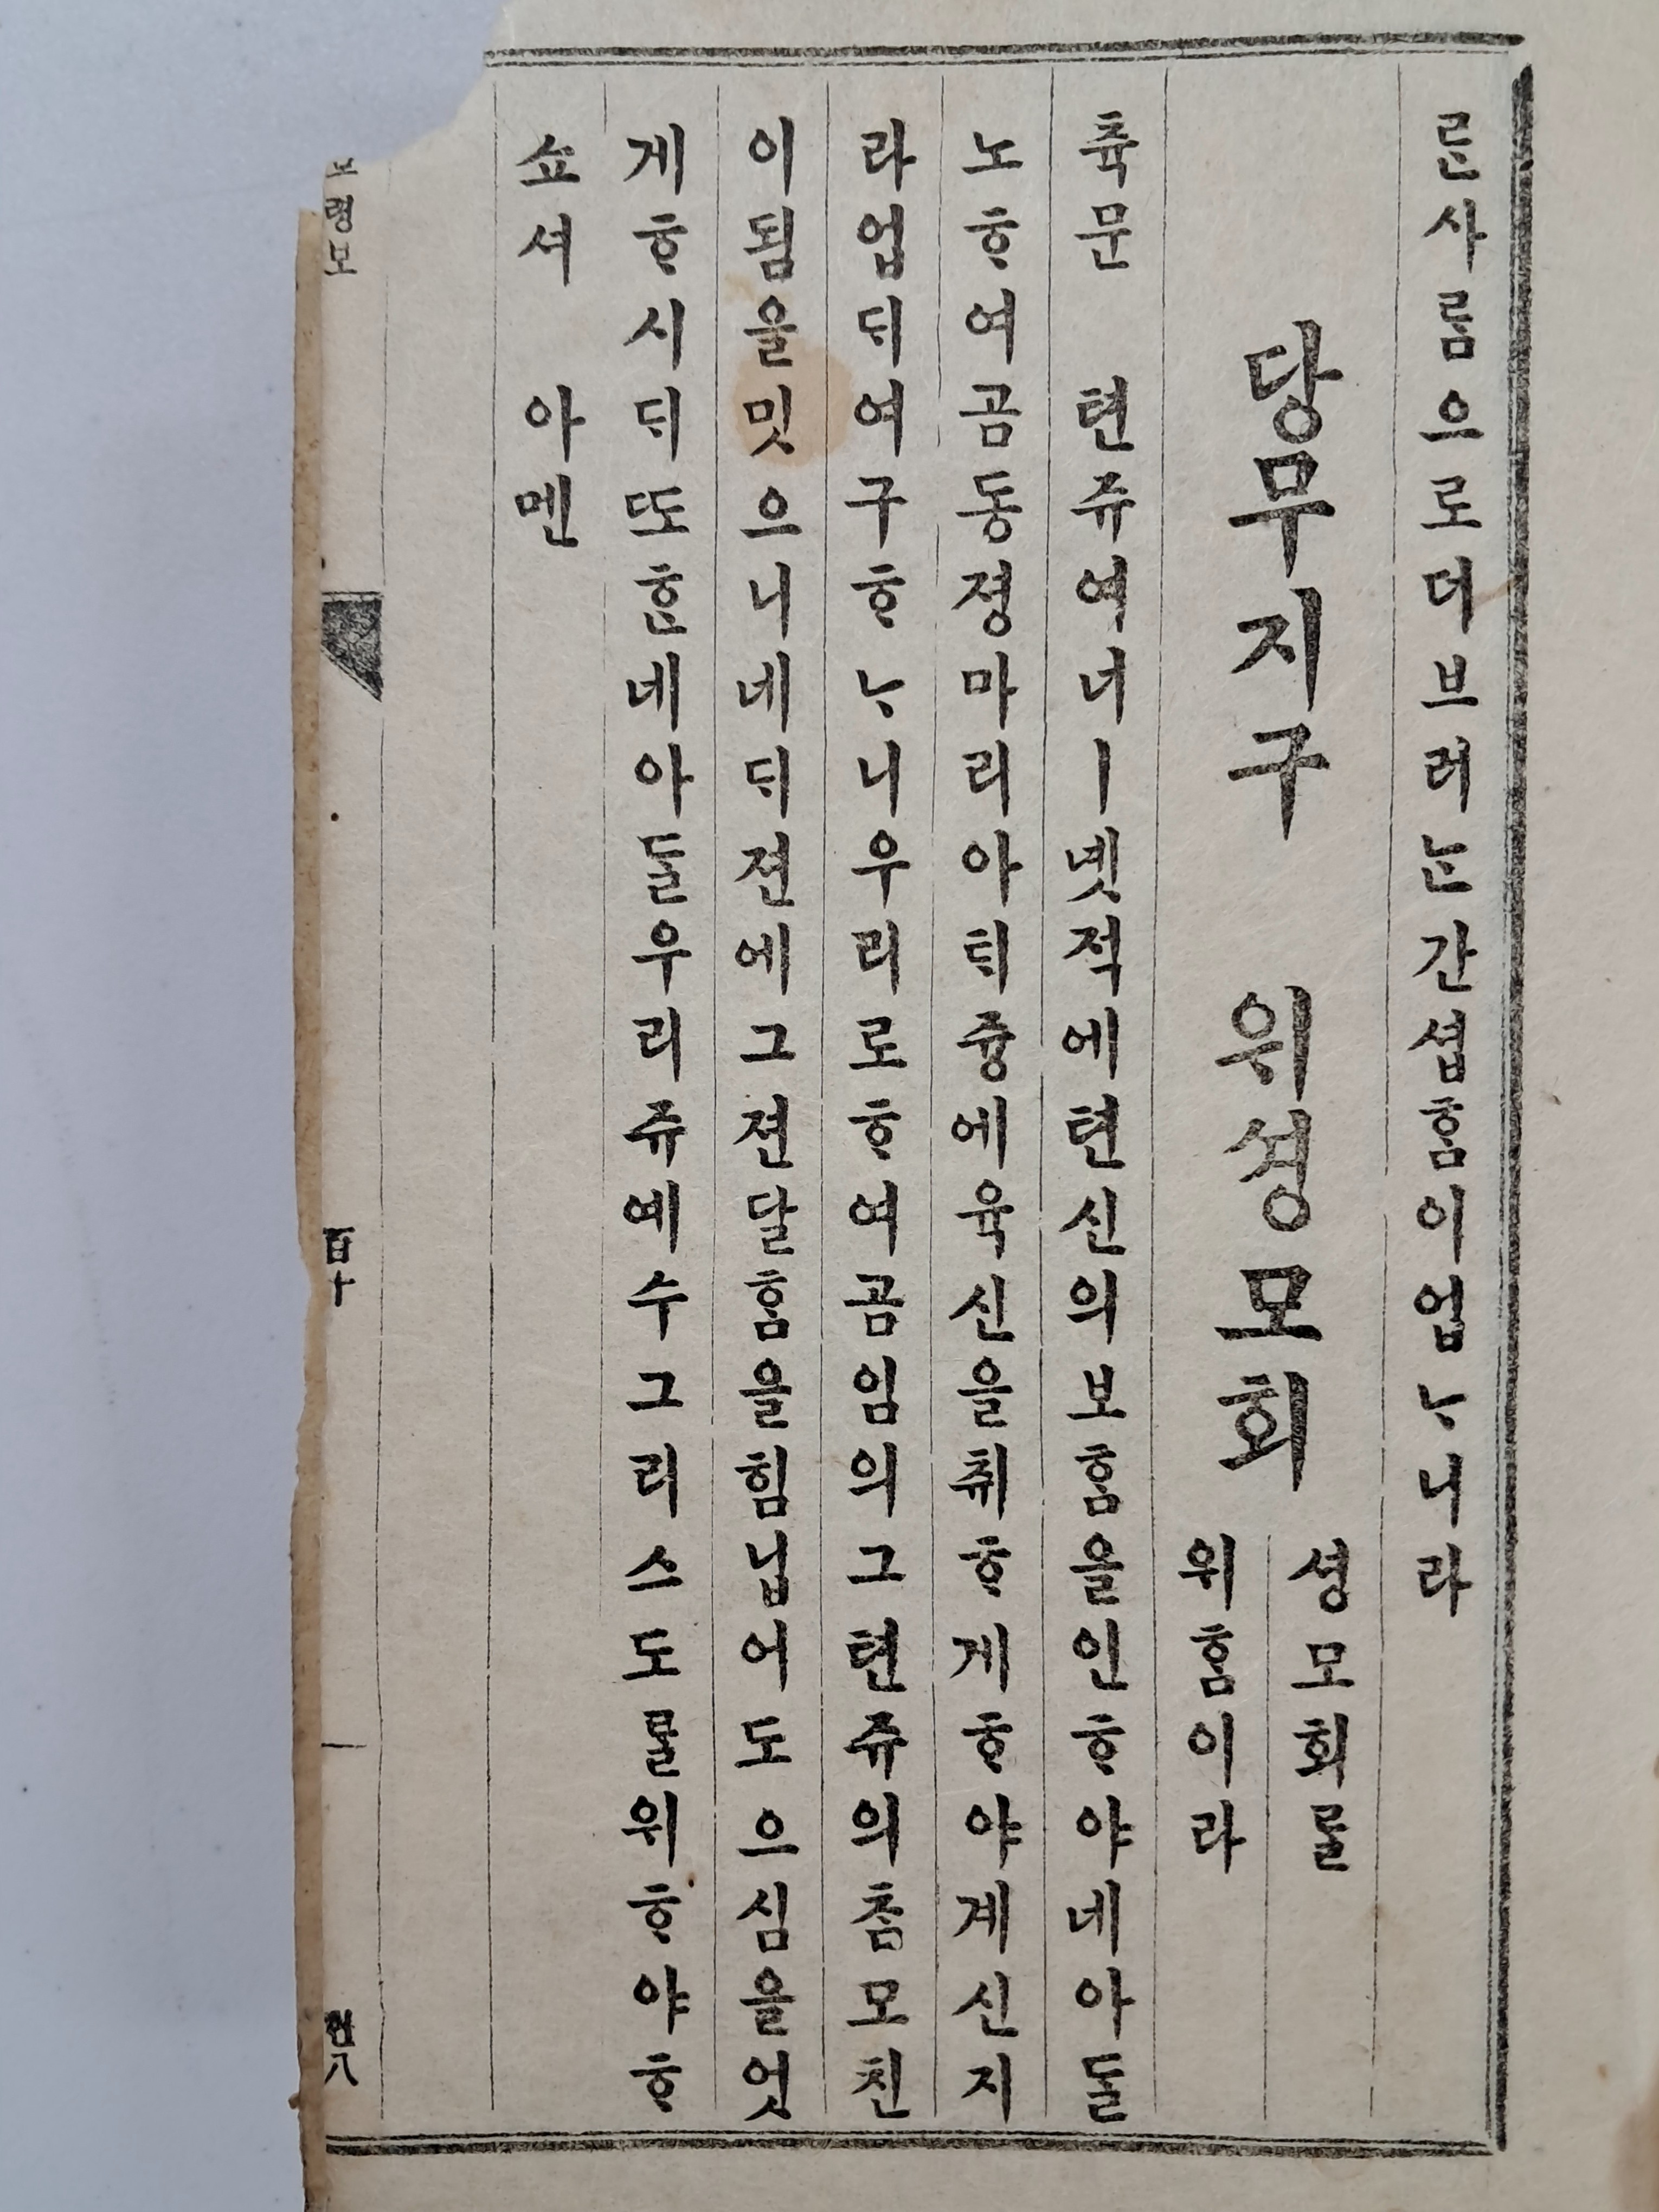 른사ᄅᆞᆷ으로더브러ᄂᆞᆫ간셥ᄒᆞᆷ이업ᄂᆞ니라
당무지구 위셩모회
셩모회ᄅᆞᆯ
위ᄒᆞᆷ이라
츅문 텬쥬여너ㅣ녯적에텬신의보ᄒᆞᆷ을인ᄒᆞ야네아ᄃᆞᆯ
노ᄒᆞ여곰동졍마리아ᄐᆡ즁에육신을취ᄒᆞ게ᄒᆞ야계신지
라업ᄃᆡ여구ᄒᆞᄂᆞ니우리로ᄒᆞ여곰임의그텬쥬의ᄎᆞᆷ모친
이됨을밋으니네ᄃᆡ젼에그젼달ᄒᆞᆷ을힘닙어도으심을엇
게ᄒᆞ시ᄃᆡ또ᄒᆞᆫ네아ᄃᆞᆯ우리쥬예수그리스도ᄅᆞᆯ위ᄒᆞ야ᄒᆞ
쇼셔 아멘
령모
百十
八